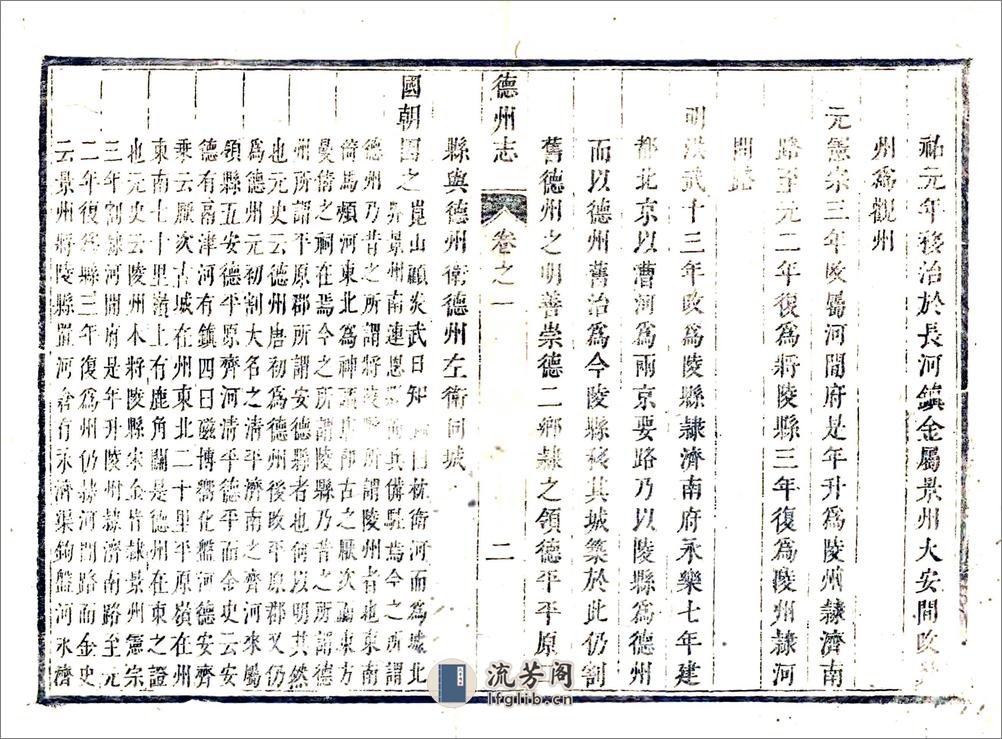 祐元年移治於長河鎮金屬景州大安間改
州爲觀州
元憲宗三年陵屬河間府是年升爲陵州隸濟南
路至元二年復爲將陵縣三年復爲陵州隸河
間路
明洪武十三年改爲陵縣隸濟南府永樂七年建
都北京以漕河爲兩京要路乃以陵縣爲德州
而以德州舊治爲今陵縣移其城築於此仍割
舊德州之明善崇德二鄉隸之領德平平原
德州志
卷之一
二
縣與德州衛德州左衛同城
國朝因之崑山顧炎武日知
枕衛河而爲城北
界景州南連恩
兵備駐焉今之所謂
德州乃昔之所謂將陵
所謂陵州者也東南
倚馬頰河東北爲神頭
卽古之厭次
東方
曼倩之祠在焉今之所謂陵縣乃昔之所謂德
州所謂平原郡所謂安德縣者也何以明其然
也元史云德州唐初爲德州後改平原郡又仍
爲德州元初割大名之清平濟南之齊河來屬
領縣五安德平原齊河清平德平而金史云安
德有鬲津河有鎮四曰磁博嚮化盤河德安齊
乘云厭次古城在州東北二十里平原嶺在州
東南七十里嶺上有鹿角關是德州在東之證
也元史云陵州本將陵縣宋金皆隸景州憲宗
三年割隸河間府是年升陵州隸濟南路至元
二年復爲縣三年復爲州仍隸河間路而金史
云景州將陵縣置河倉有永濟渠鉤盤河永濟
流芳阁
lfglib.cn